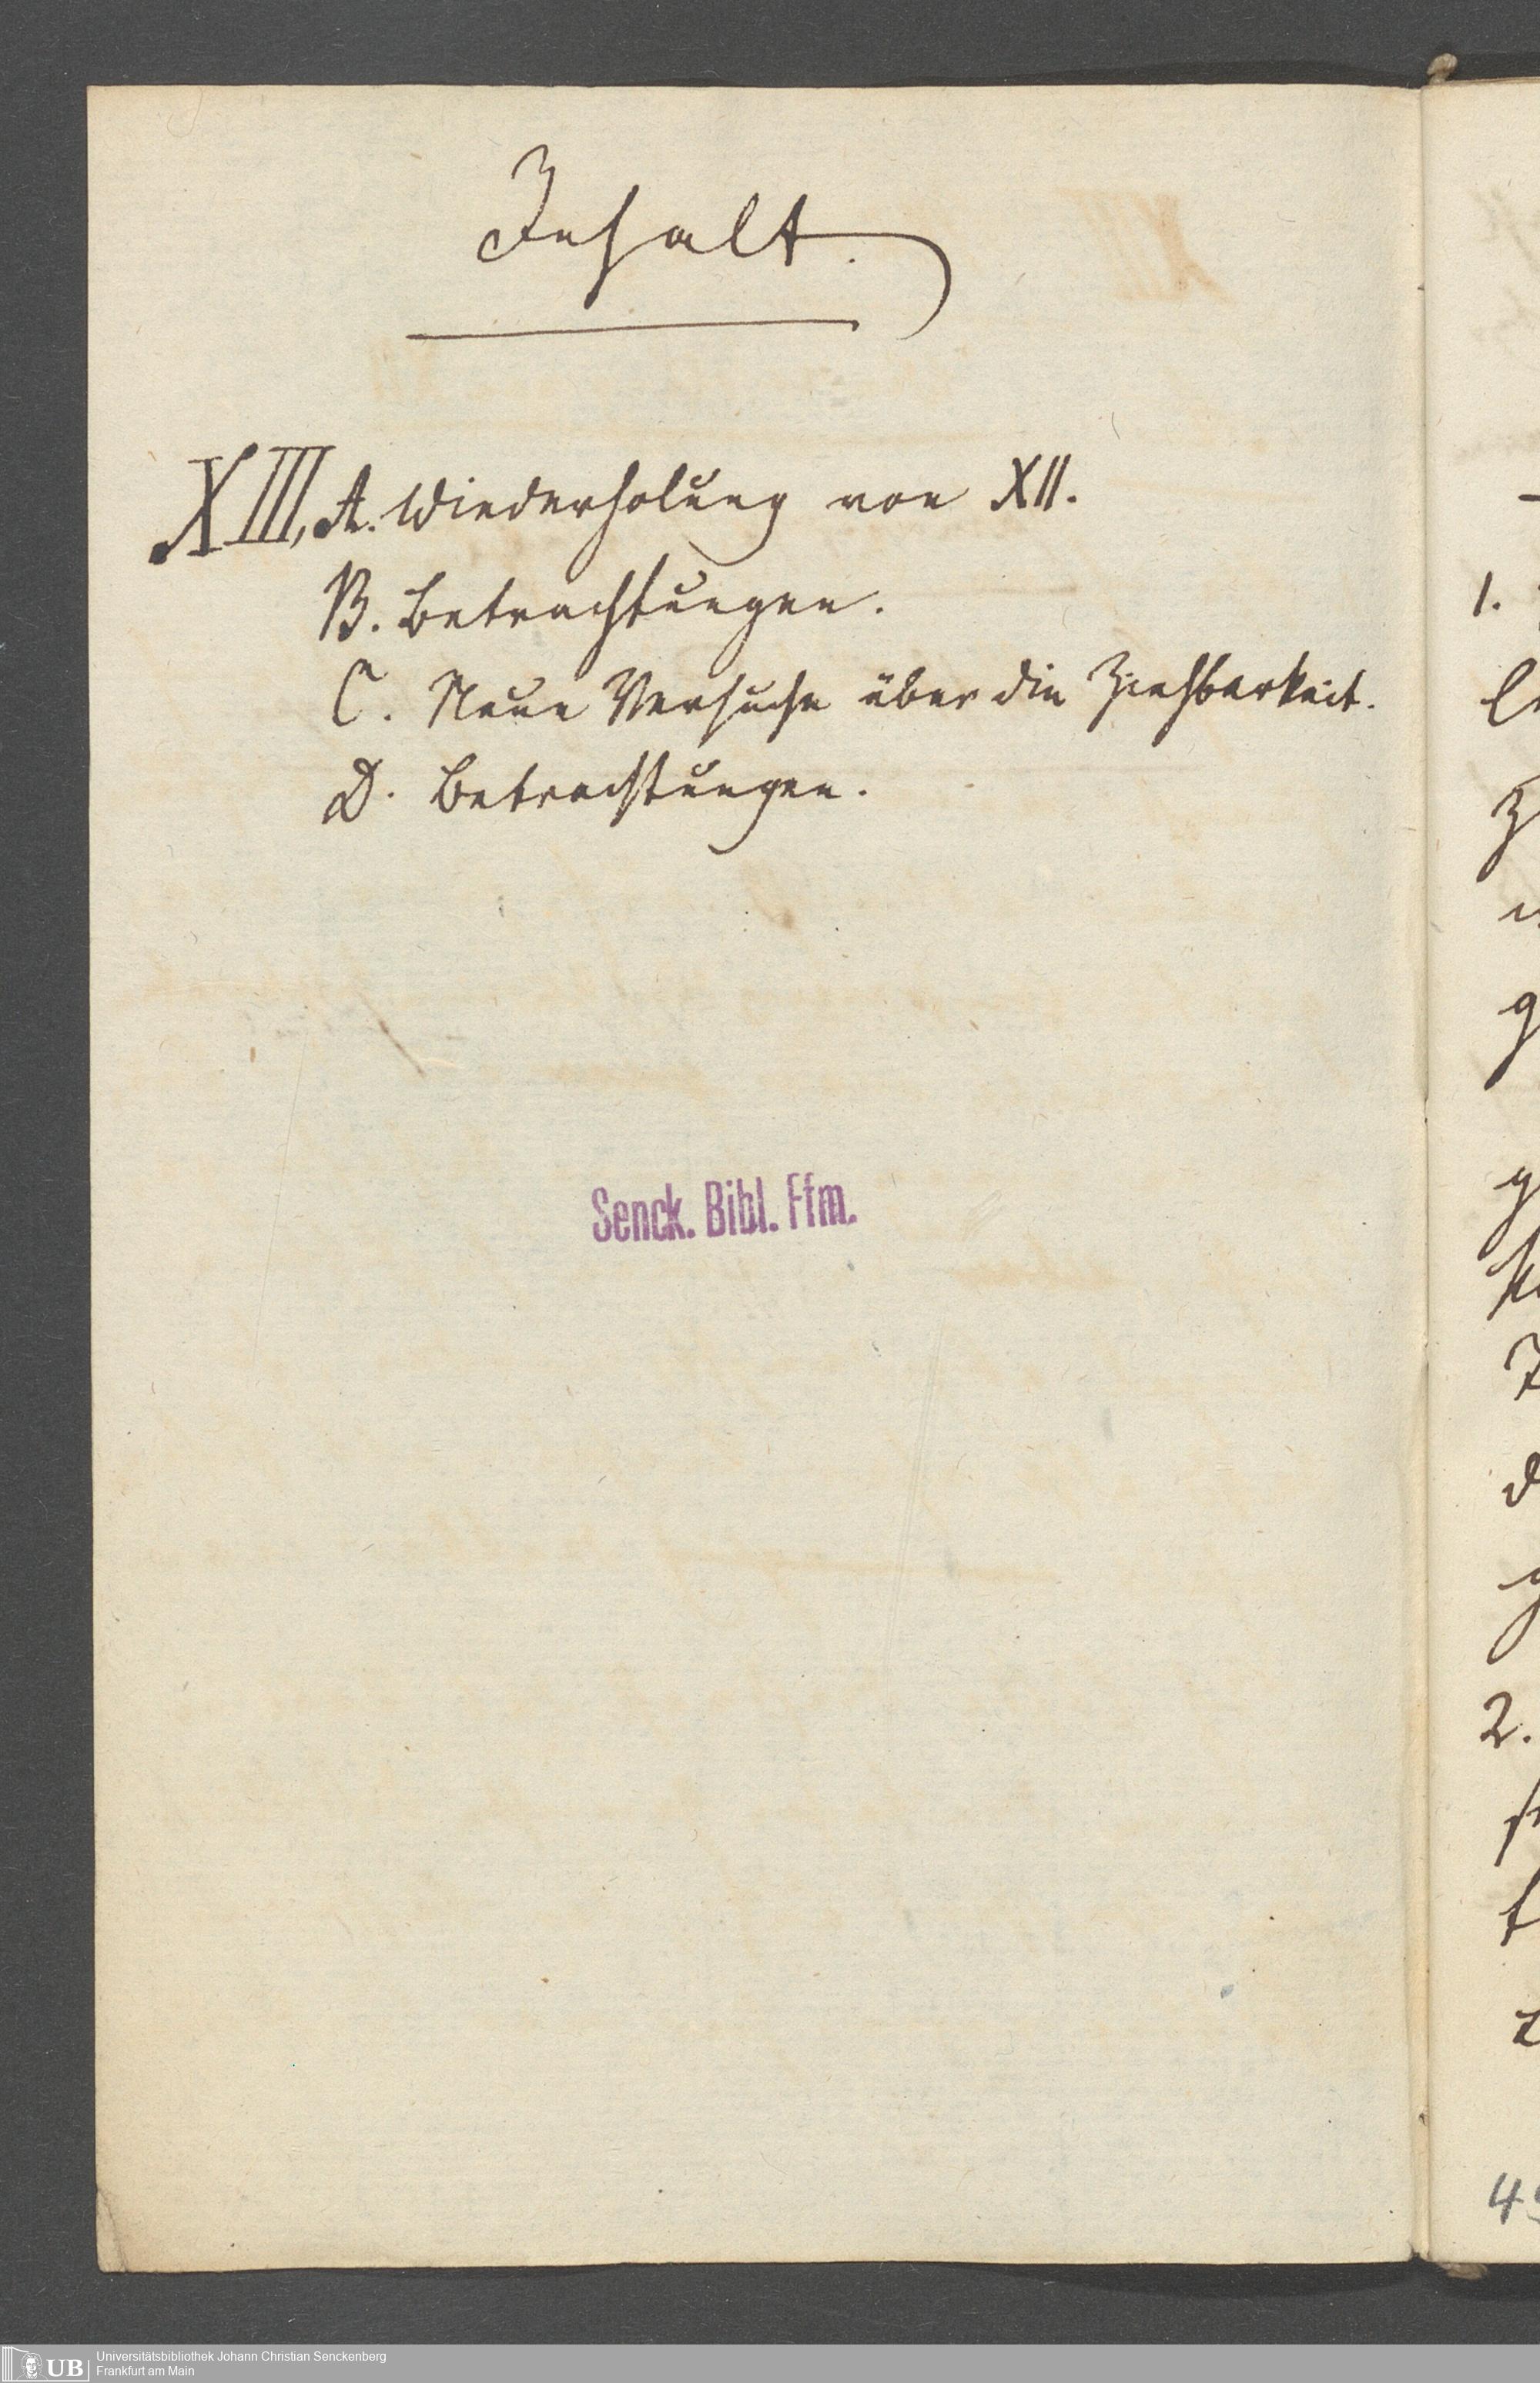 Inhalt.
XIII, A. Wiederholung von XII.
B. Betrachtungen.
C. Neue Versuche über die Ziehbarkeit.
D. Betrachtungen.
Senck. Bibl. Ffm.
1.
2.
UB
Universitätsbibliothek Johann Christian Senckenberg
Frankfurt am Main